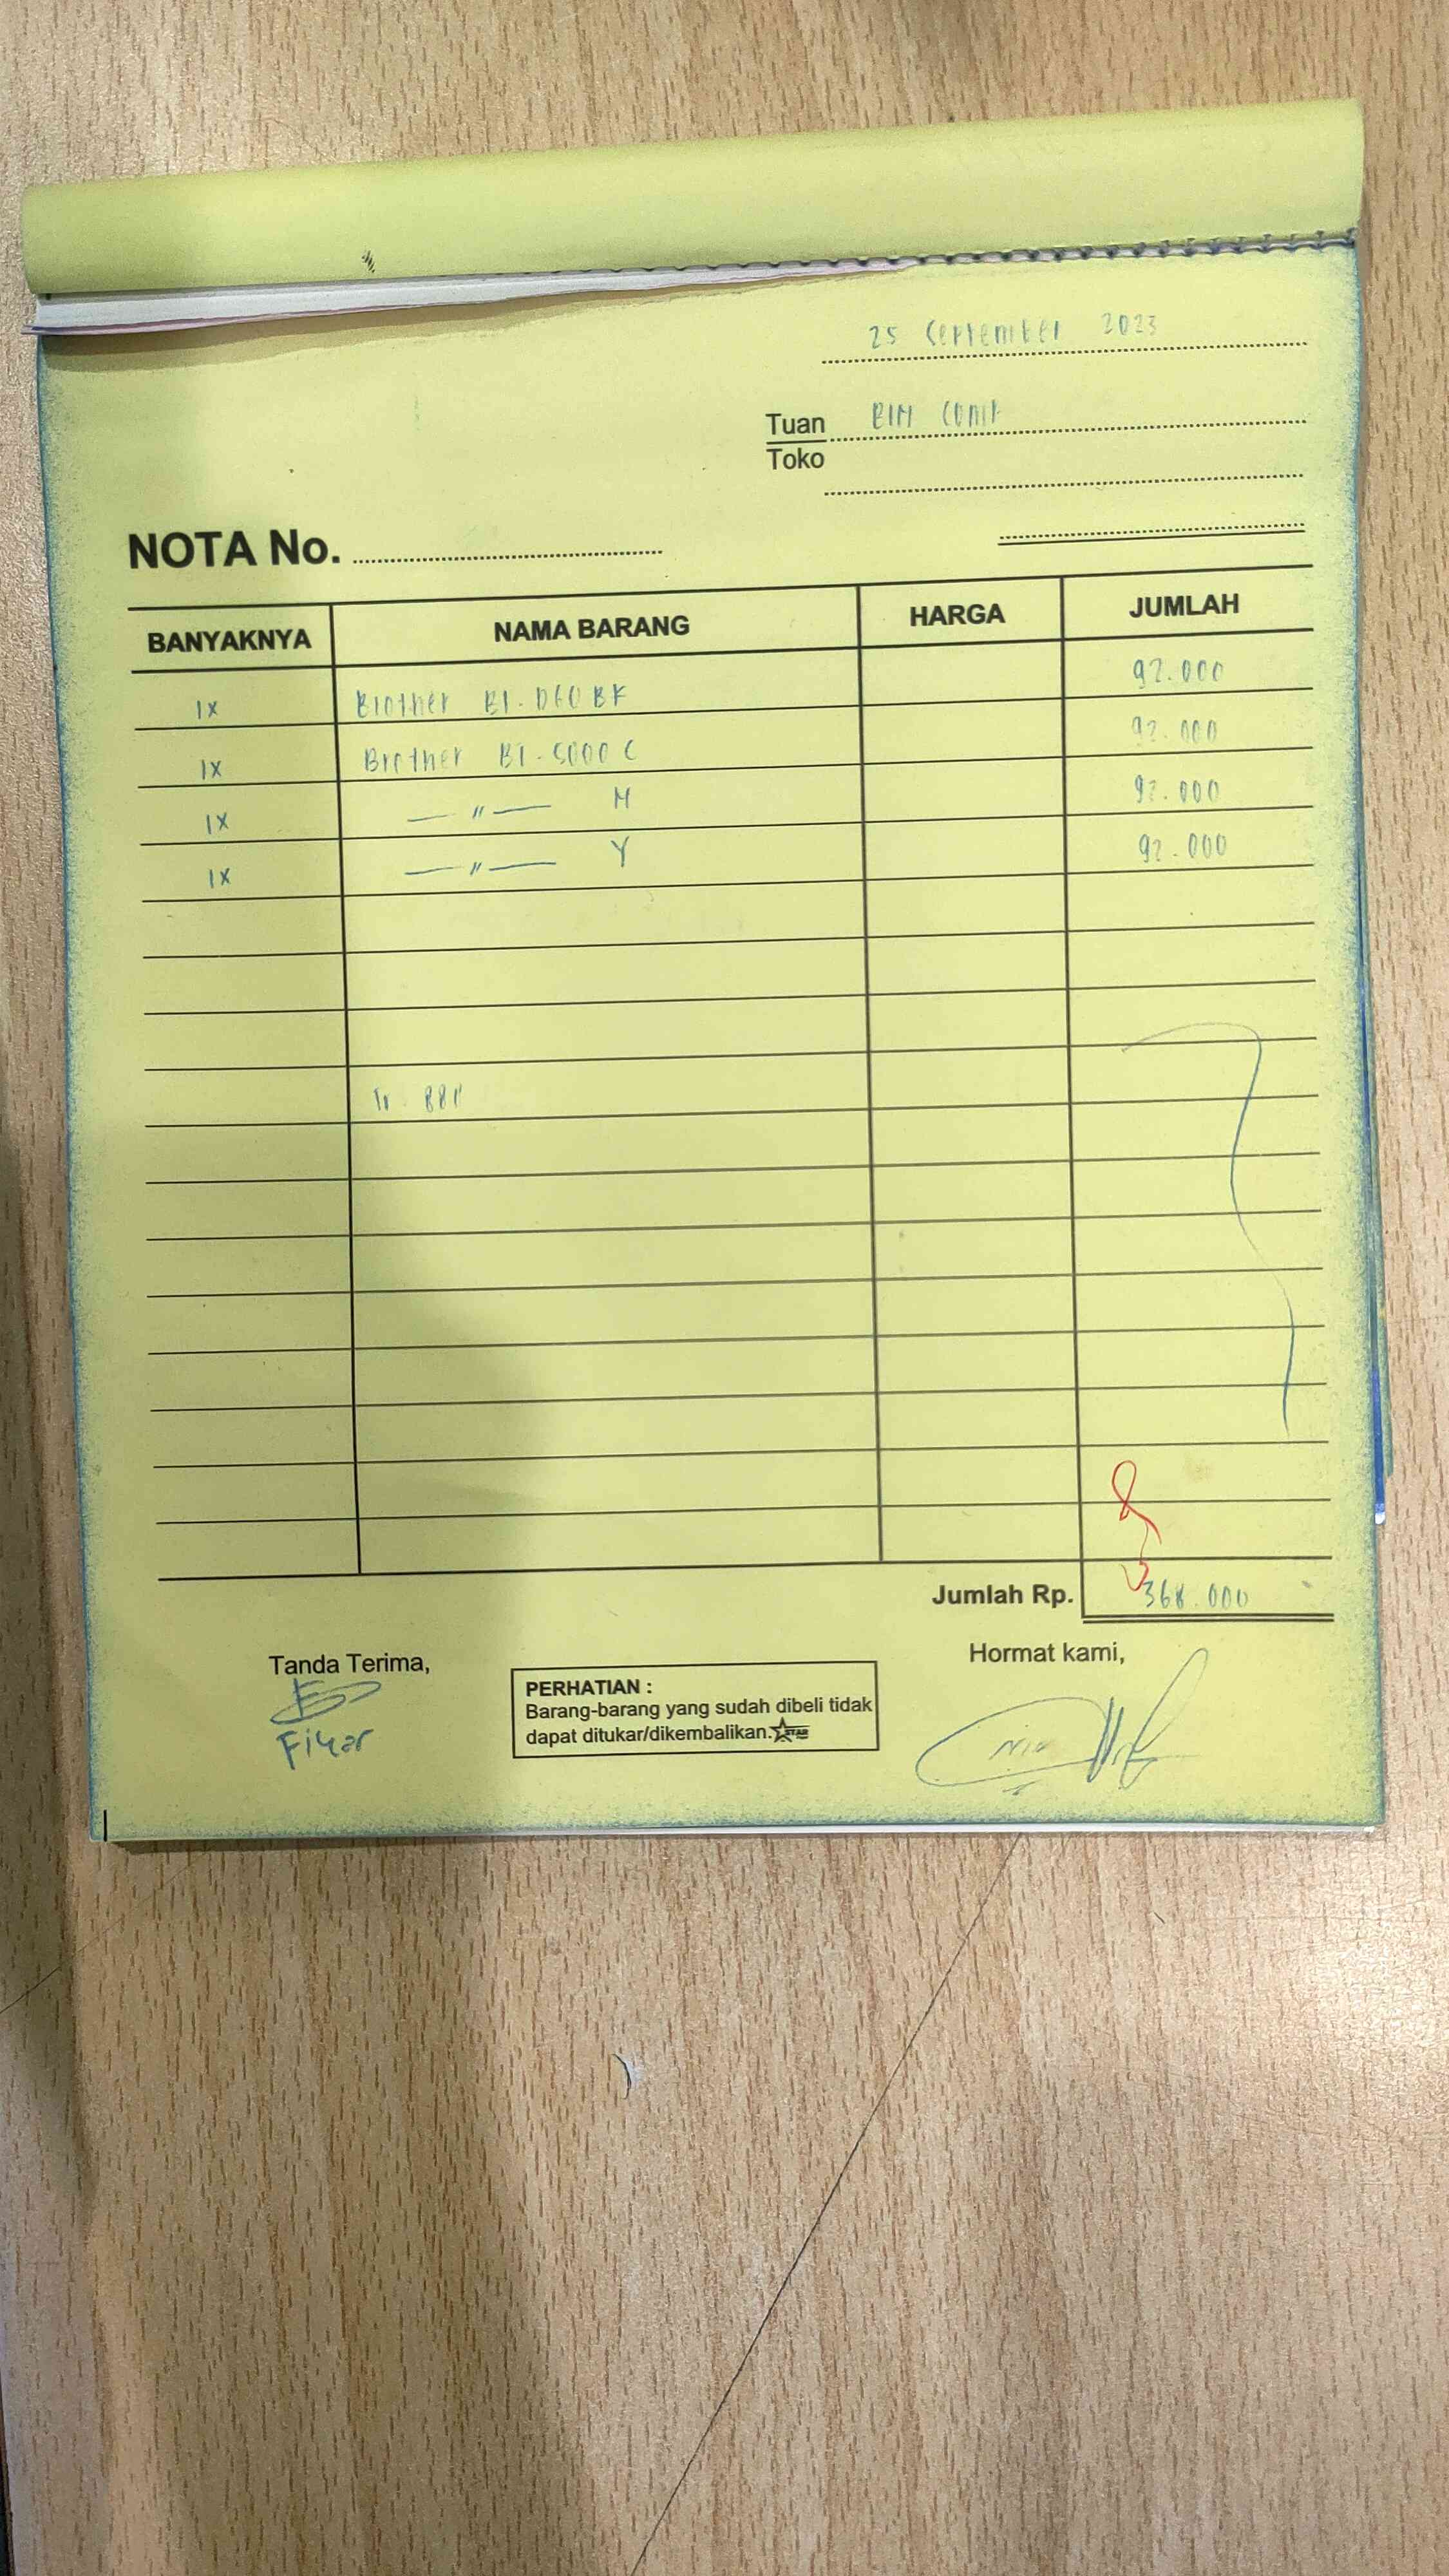 25 September 2023
Tuan BIM COMP
Toko
NOTA No.
BANYAKNYA NAMA BARANG HARGA JUMLAH
1x Brother BT-D60BK 92.000
1x Brother BT-5000 C 92.000
1x — " — M 92.000
1x — " — Y 92.000
Jumlah Rp. 368.000
Tanda Terima,
Hormat kami,
Fikar
PERHATIAN :
Barang-barang yang sudah dibeli tidak
dapat ditukar/dikembalikan. STAR